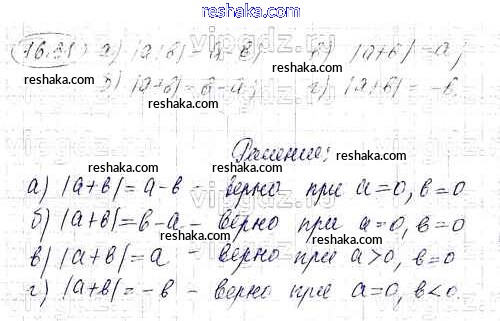 16.31) а) |а+в| = а-в; в) |а+в| = а;
б) |а+в| = в-а; г) |а+в| = -в.
Решение:
а) |а+в| = а-в - верно при а=0, в=0
б) |а+в| = в-а - верно при а=0, в=0
в) |а+в| = а - верно при а>0, в=0
г) |а+в| = -в - верно при а=0, в<0.
reshaka.com
reshaka.com
reshaka.com
reshaka.com
reshaka.com
reshaka.com
reshaka.com
reshaka.com